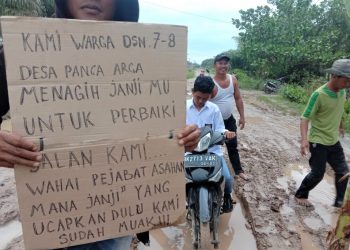 KAMI WARGA DSN.7-8
DESA PANCA ARGA
MENAGIH JANJI MU
UNTUK PERBAIKI
JALAN KAMI....
WAHAI PEJABAT ASAHAN
MANA JANJI" YANG
UCAPKAN DULU KAMI
SUDAH MUAK!!!